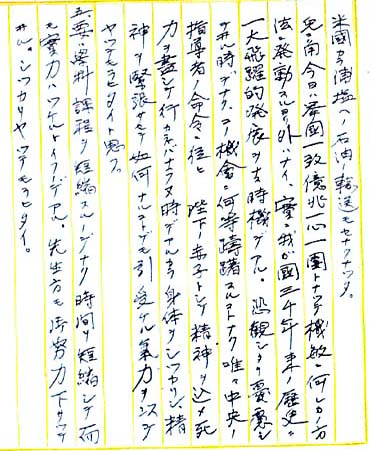 米國カラ浦塩ヘノ石油ノ輸送モセナクナッタ。
兎ニ角今日ハ挙國一致億兆一心一團トナッテ機敏ニ何レカノ方
法ニ発動スルヨリ外ハナイ、實ニ我ガ國三千年来ノ歴史ニ
一大飛躍的発展ヲナス時機デアル。悲観シタリ憂慮シ
サル時デナク、コノ機会ニ何等躊躇スルコトナク唯々中央ノ
指導者ノ命令ニ信ジ 陛下ノ赤子トシテ精神ヲ込メ死
力ヲ盡シテ行カネバナラヌ時デアルカラ身体ヲシッカリシ、精
神ヲ緊張サセテ如何ナルコトデモ引受ケル氣力ヲツクッ
ヤッテモラヒタイト思フ。
要ハ資料課程ヲ短縮スルノデナク時間ヲ短縮シテ而
モ實力ハツケルトイフノデアル。先生方モ御努力下サッテ
ヰル。シッカリヤッテモラヒタイ。